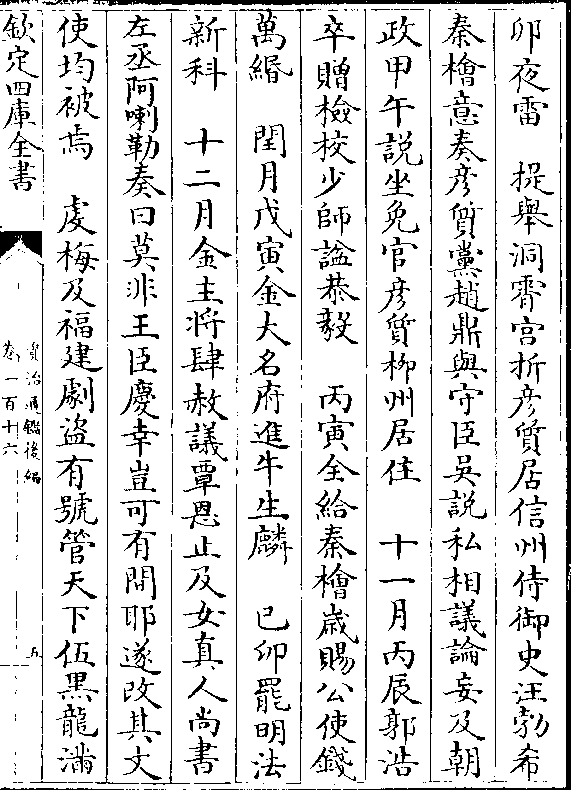 卯夜雷　提舉洞霄宮折彥質居信州侍御史汪勃希
秦檜意奏彥質黨趙鼎與守臣吳説私相議論妄及朝
政甲午説坐免官彥質柳州居住　十一月丙辰郭浩
卒贈檢校少師諡恭毅　丙寅全給秦檜歲賜公使錢
萬緡　閏月戊寅金大名府進牛生麟　已卯罷明法
新科　十二月金主將肆赦議覃恩止及女真人尚書
左丞阿喇勒奏曰莫非王臣慶幸豈可有間耶遂改其文
使均被焉　虔梅及福建劇盜有號管天下伍黑龍滿
欽定四庫全書
資治通鑑後編
卷一百十六
五